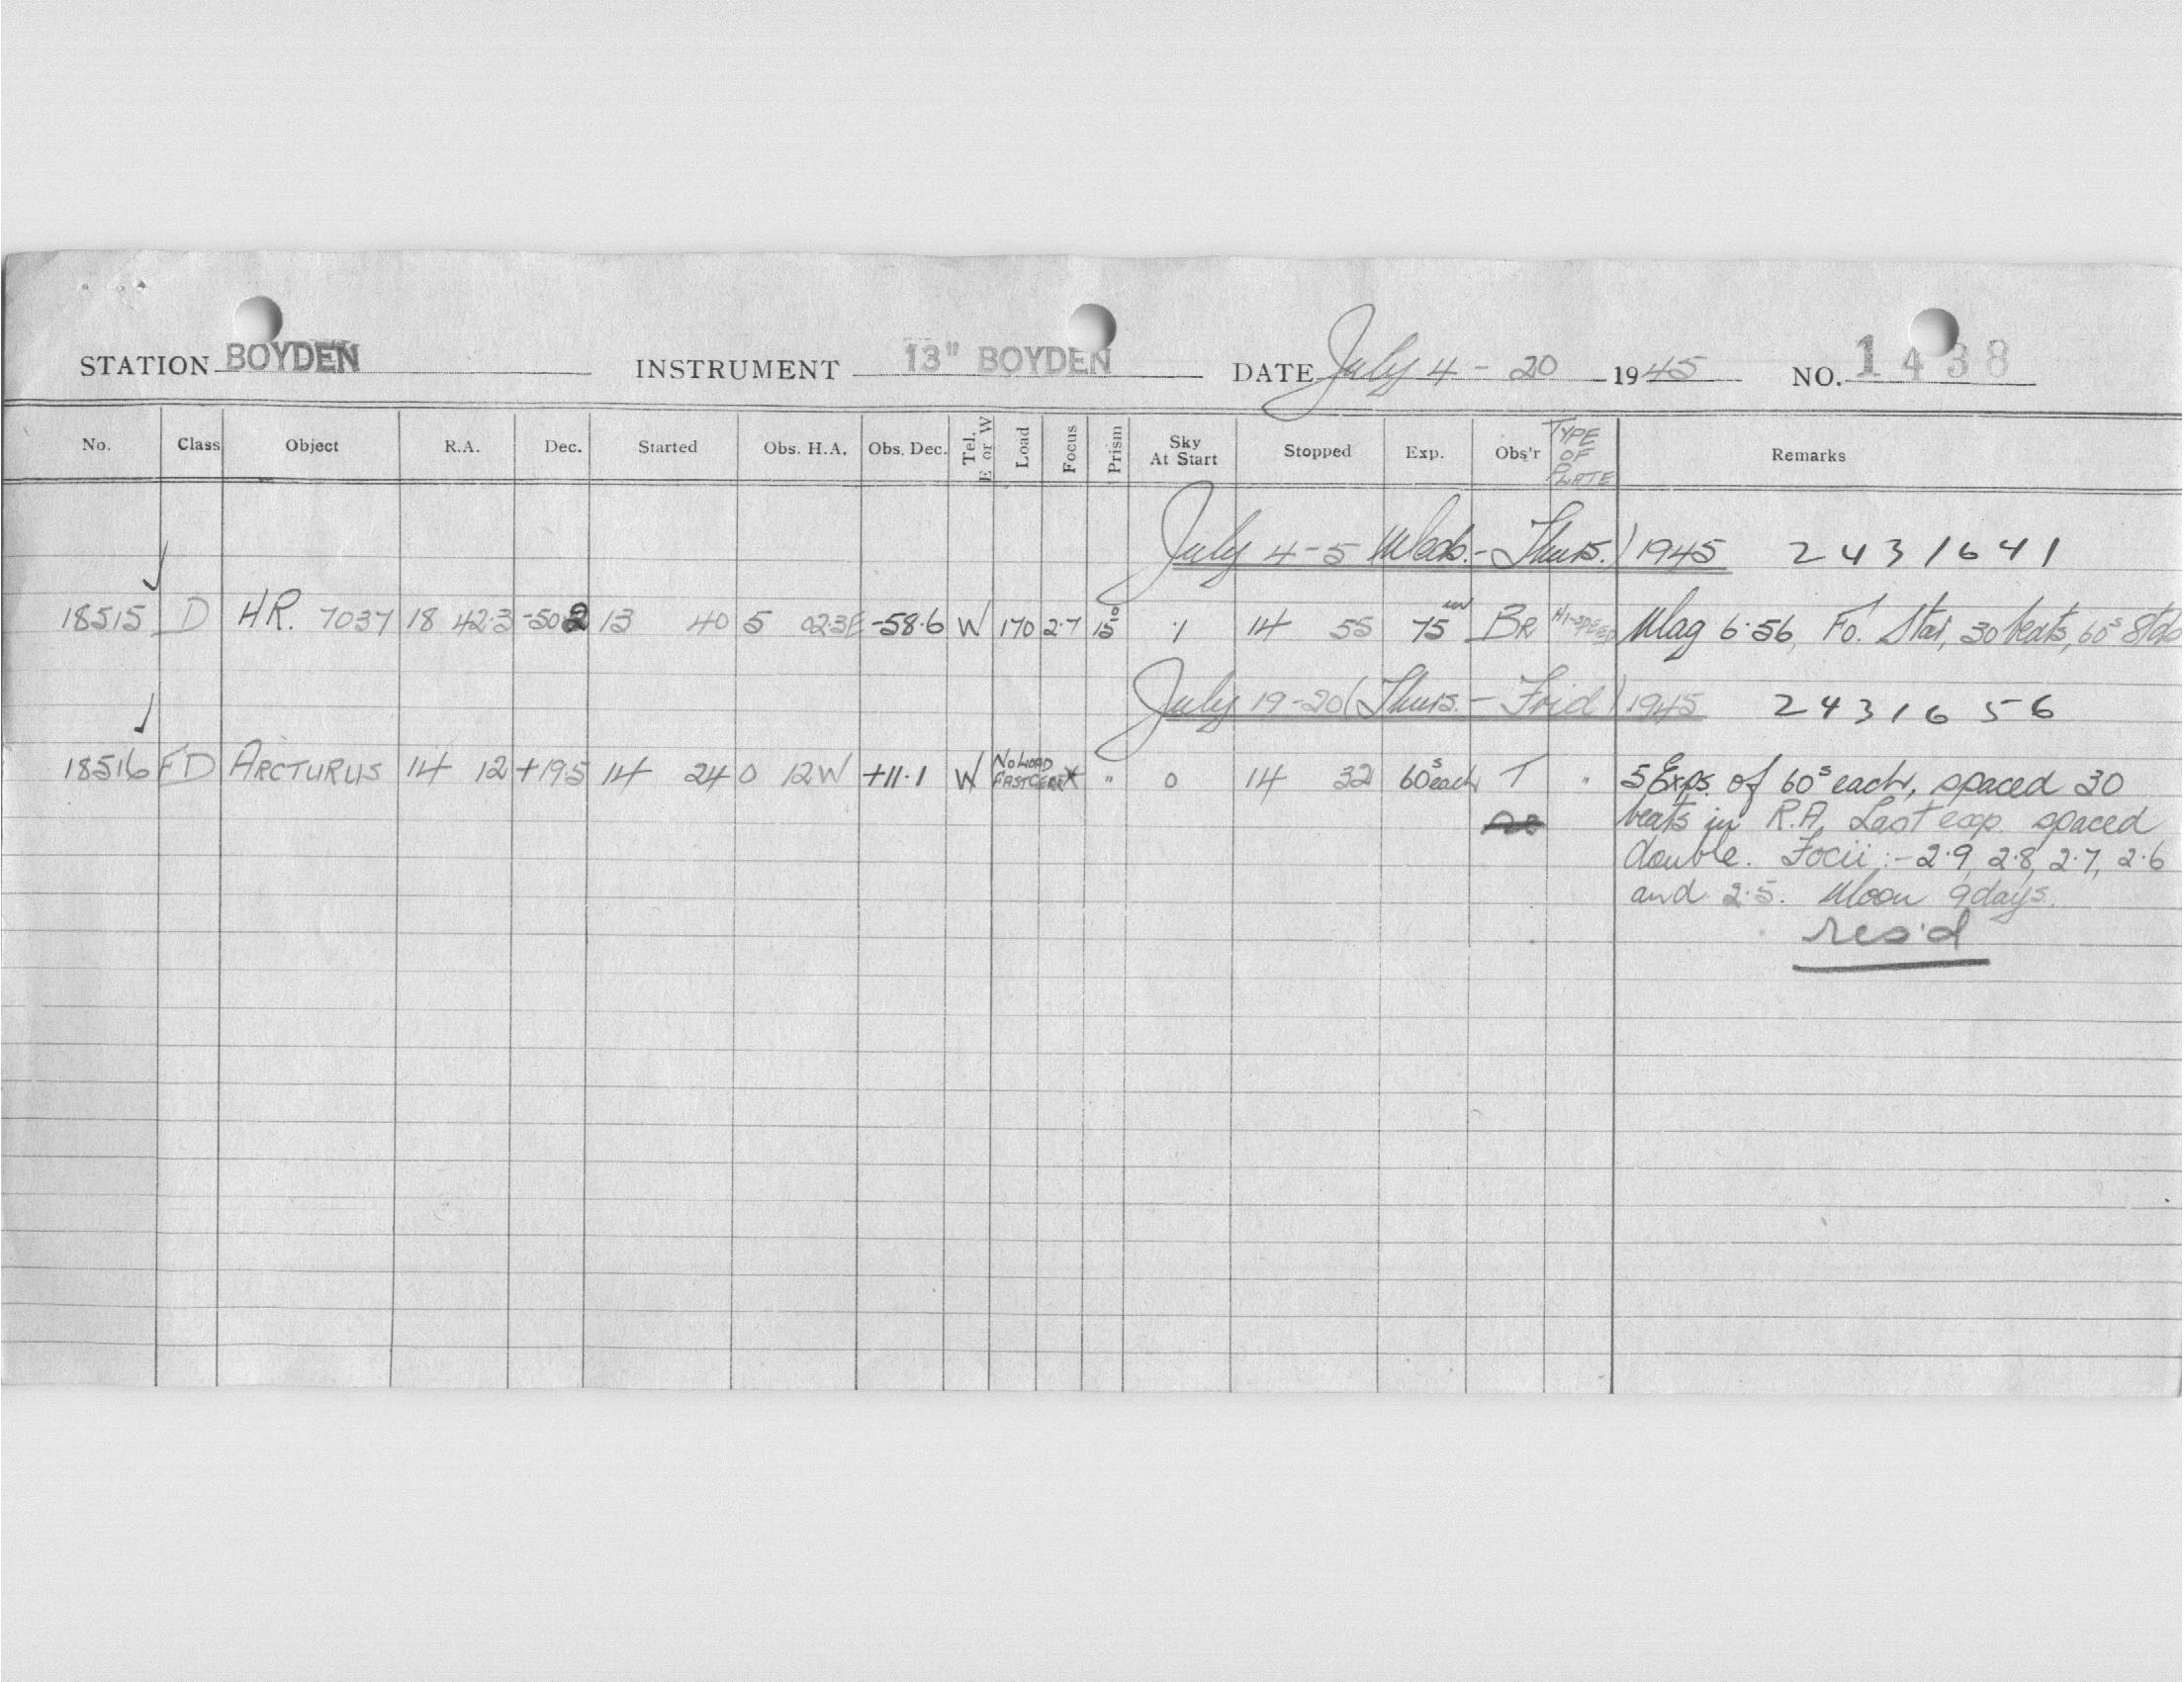 STATION BOYDEN INSTRUMENT 13" BOYDEN DATE July 4 - 20 1945 NO. 1438
No. Class Object R.A. Dec. Started Obs. H.A. Obs. Dec. Tel. E or W Load Focus Prism Sky At Start Stopped Exp. Obs'r TYPE OF PLATE Remarks
July 4-5 Wed. - Thurs.) 1945 2431641
18515 D HR. 7037 18 42.3 -50 2 13 40 5 023E -58.6 W 170 2.7 15° .1 14 55 75m BR HI-SPEED Mag 6.56, Fo. Star, 30 beats, 60s
July 19-20 (Thurs. - Frid) 1945 2431656
18516 FD ARCTURUS 14 12 +19.5 14 24 0 12W +11.1 W NO LOAD FAST GEAR * " 0 14 32 60s each T " 5 Exps. of 60s each, spaced 30
beats in R.A. Last exp. spaced
double. Focii :- 2.9, 2.8, 2.7, 2.6
and 2.5. Moon 9 days.
res'd